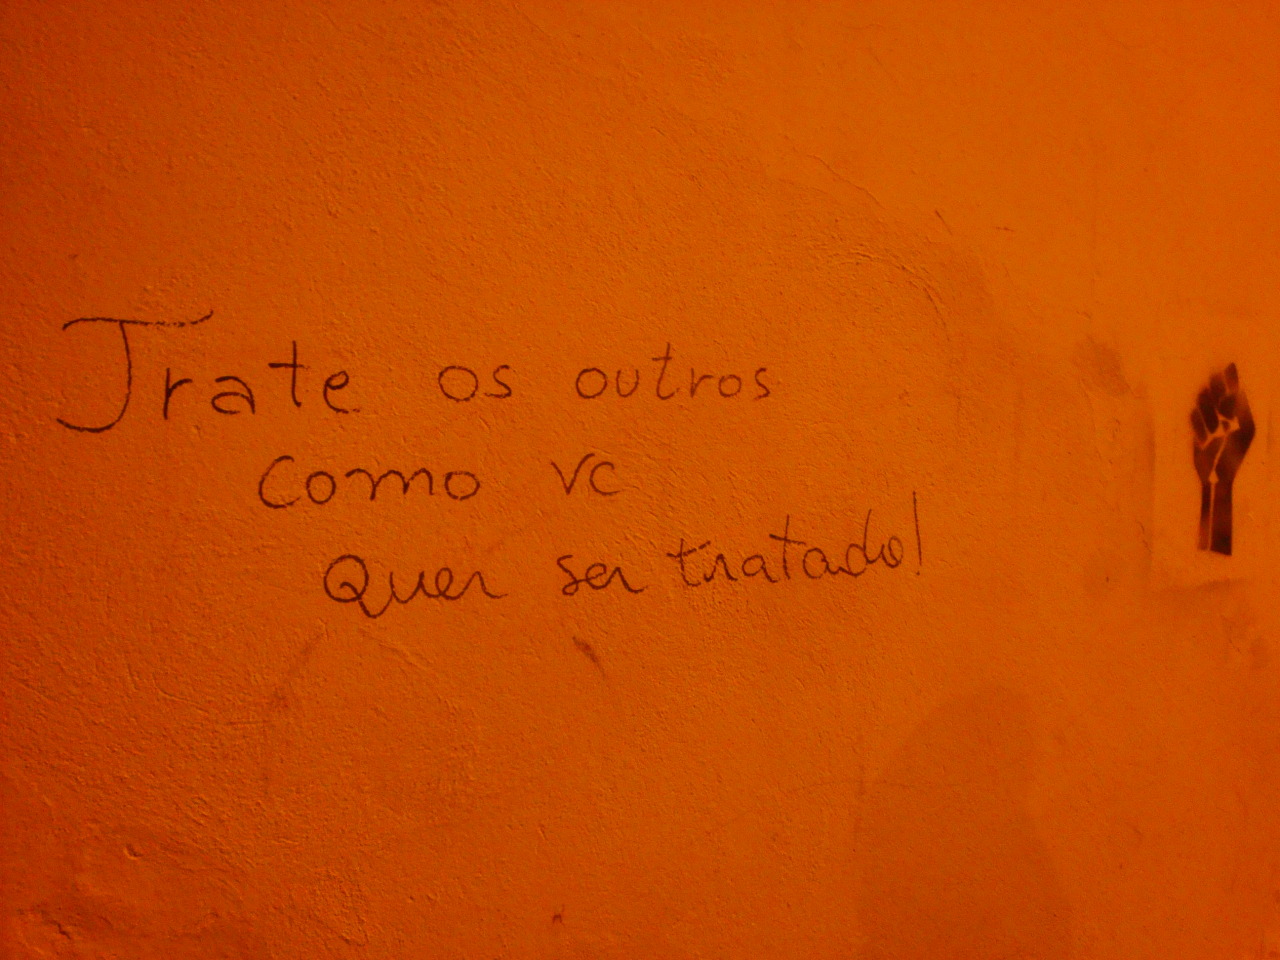 Trate os outros
como vc
Quer ser tratado!